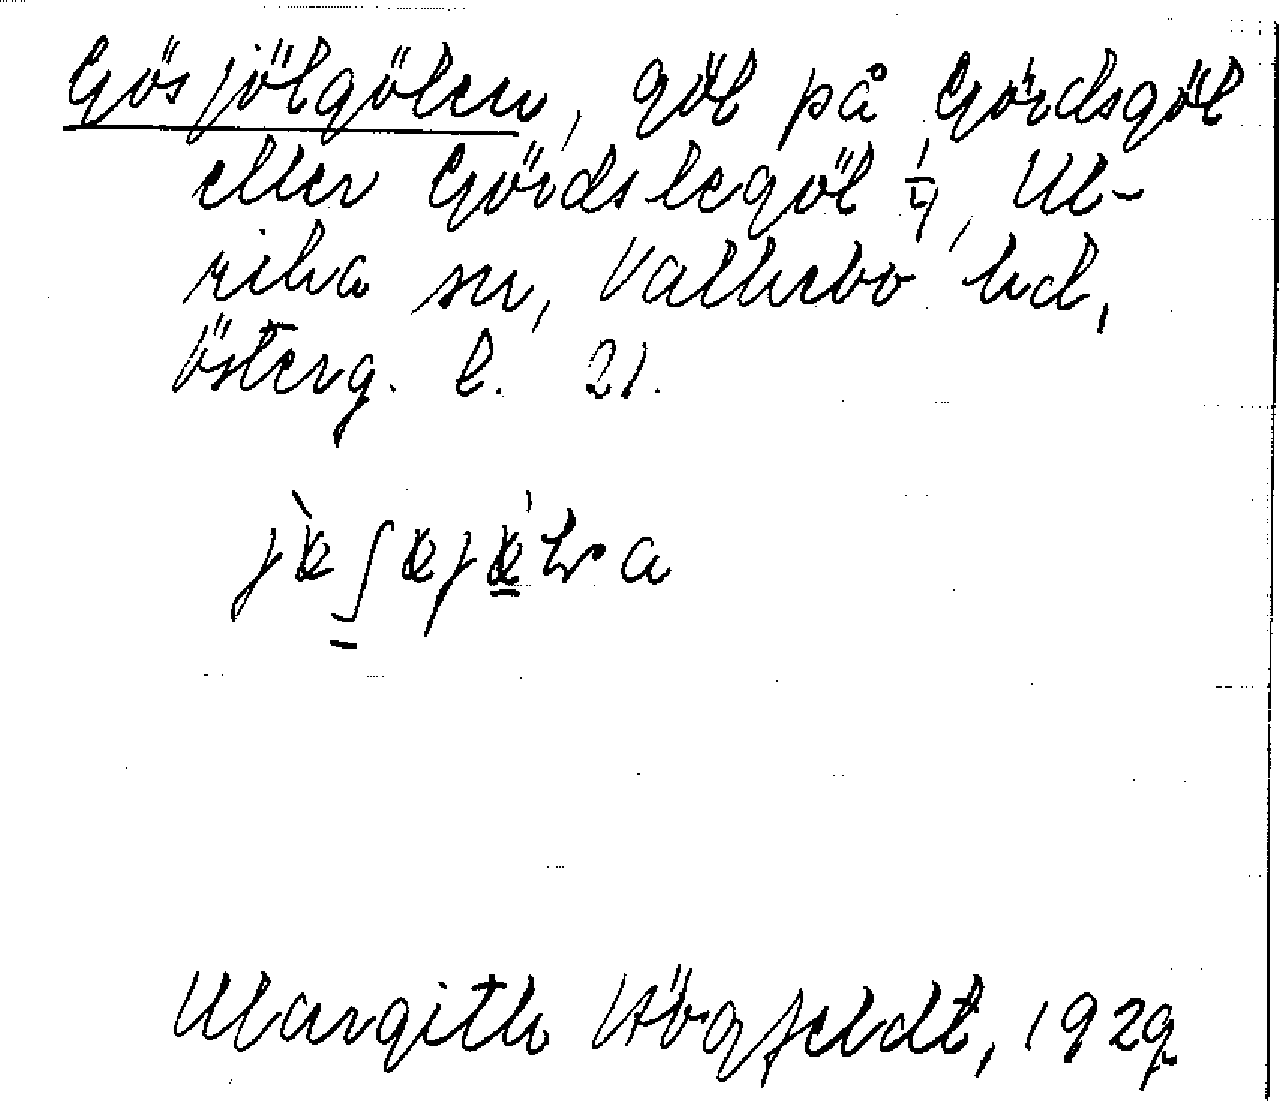 Gösjölgölen, göl på Gördsgöl
eller Gördslegöl 1/4, Ul-
rika sn, Valkebo hd,
Österg. l. 21.
Margith Högfeldt, 1929